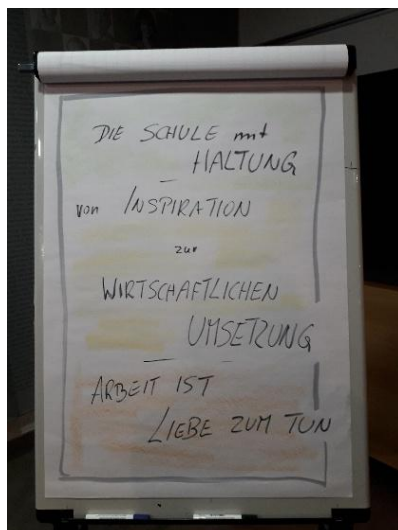 DIE SCHULE mit
HALTUNG
von INSPIRATION
zur
WIRTSCHAFTLICHEN
UMSETZUNG
ARBEIT IST
LIEBE ZUM TUN